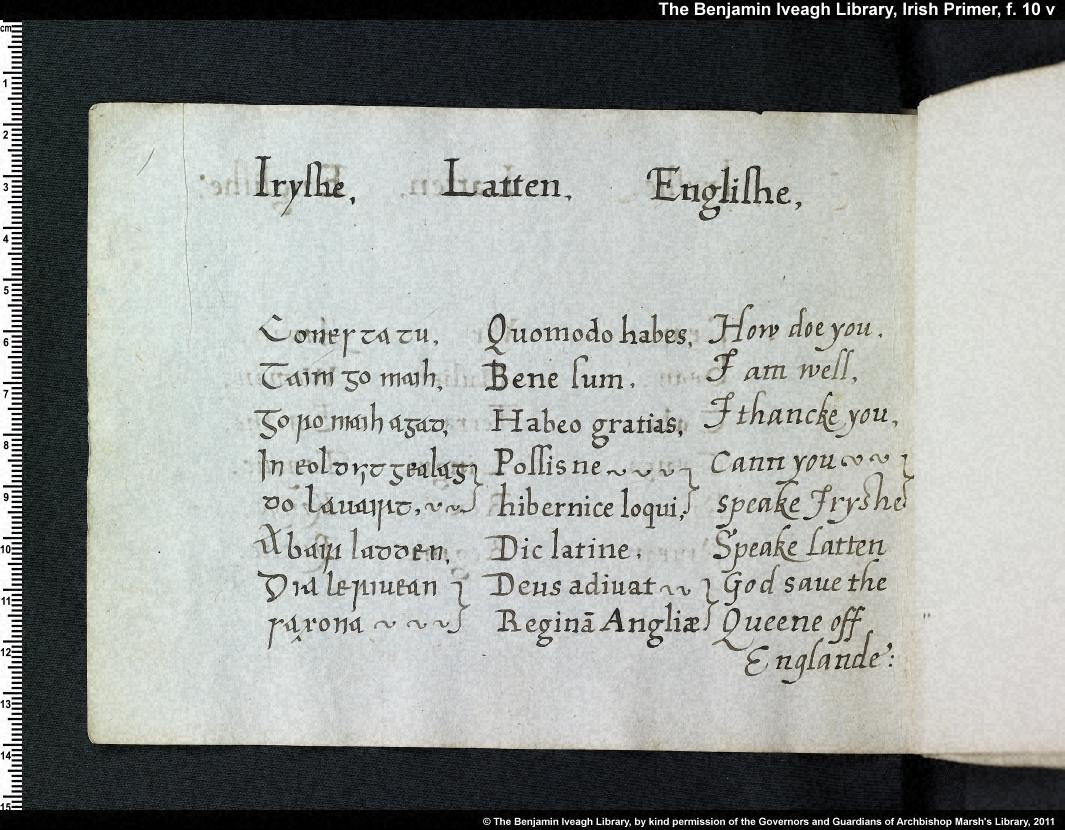 The Benjamin Iveagh Library, Irish Primer, f. 10 v
Iryſhe, Latten, Engliſhe,
Coneſ ta tu, Quomodo habes, How doe you.
Taim go maih, Bene ſum. I am well,
go ro maih agad, Habeo gratias, I thancke you,
In eol dɩt gealag Poſſis ne Cann you
do lauairt, hibernice loqui, speake Iryshe
Abair ladden, Dic latine, Speake Latten
Dia le riuean Deus adiuat God saue the
ſaxona Reginā Angliæ Queene off
Englande:
© The Benjamin Iveagh Library, by kind permission of the Governors and Guardians of Archbishop Marsh's Library, 2011
cm
1
2
3
4
5
6
7
8
9
10
11
12
13
14
15